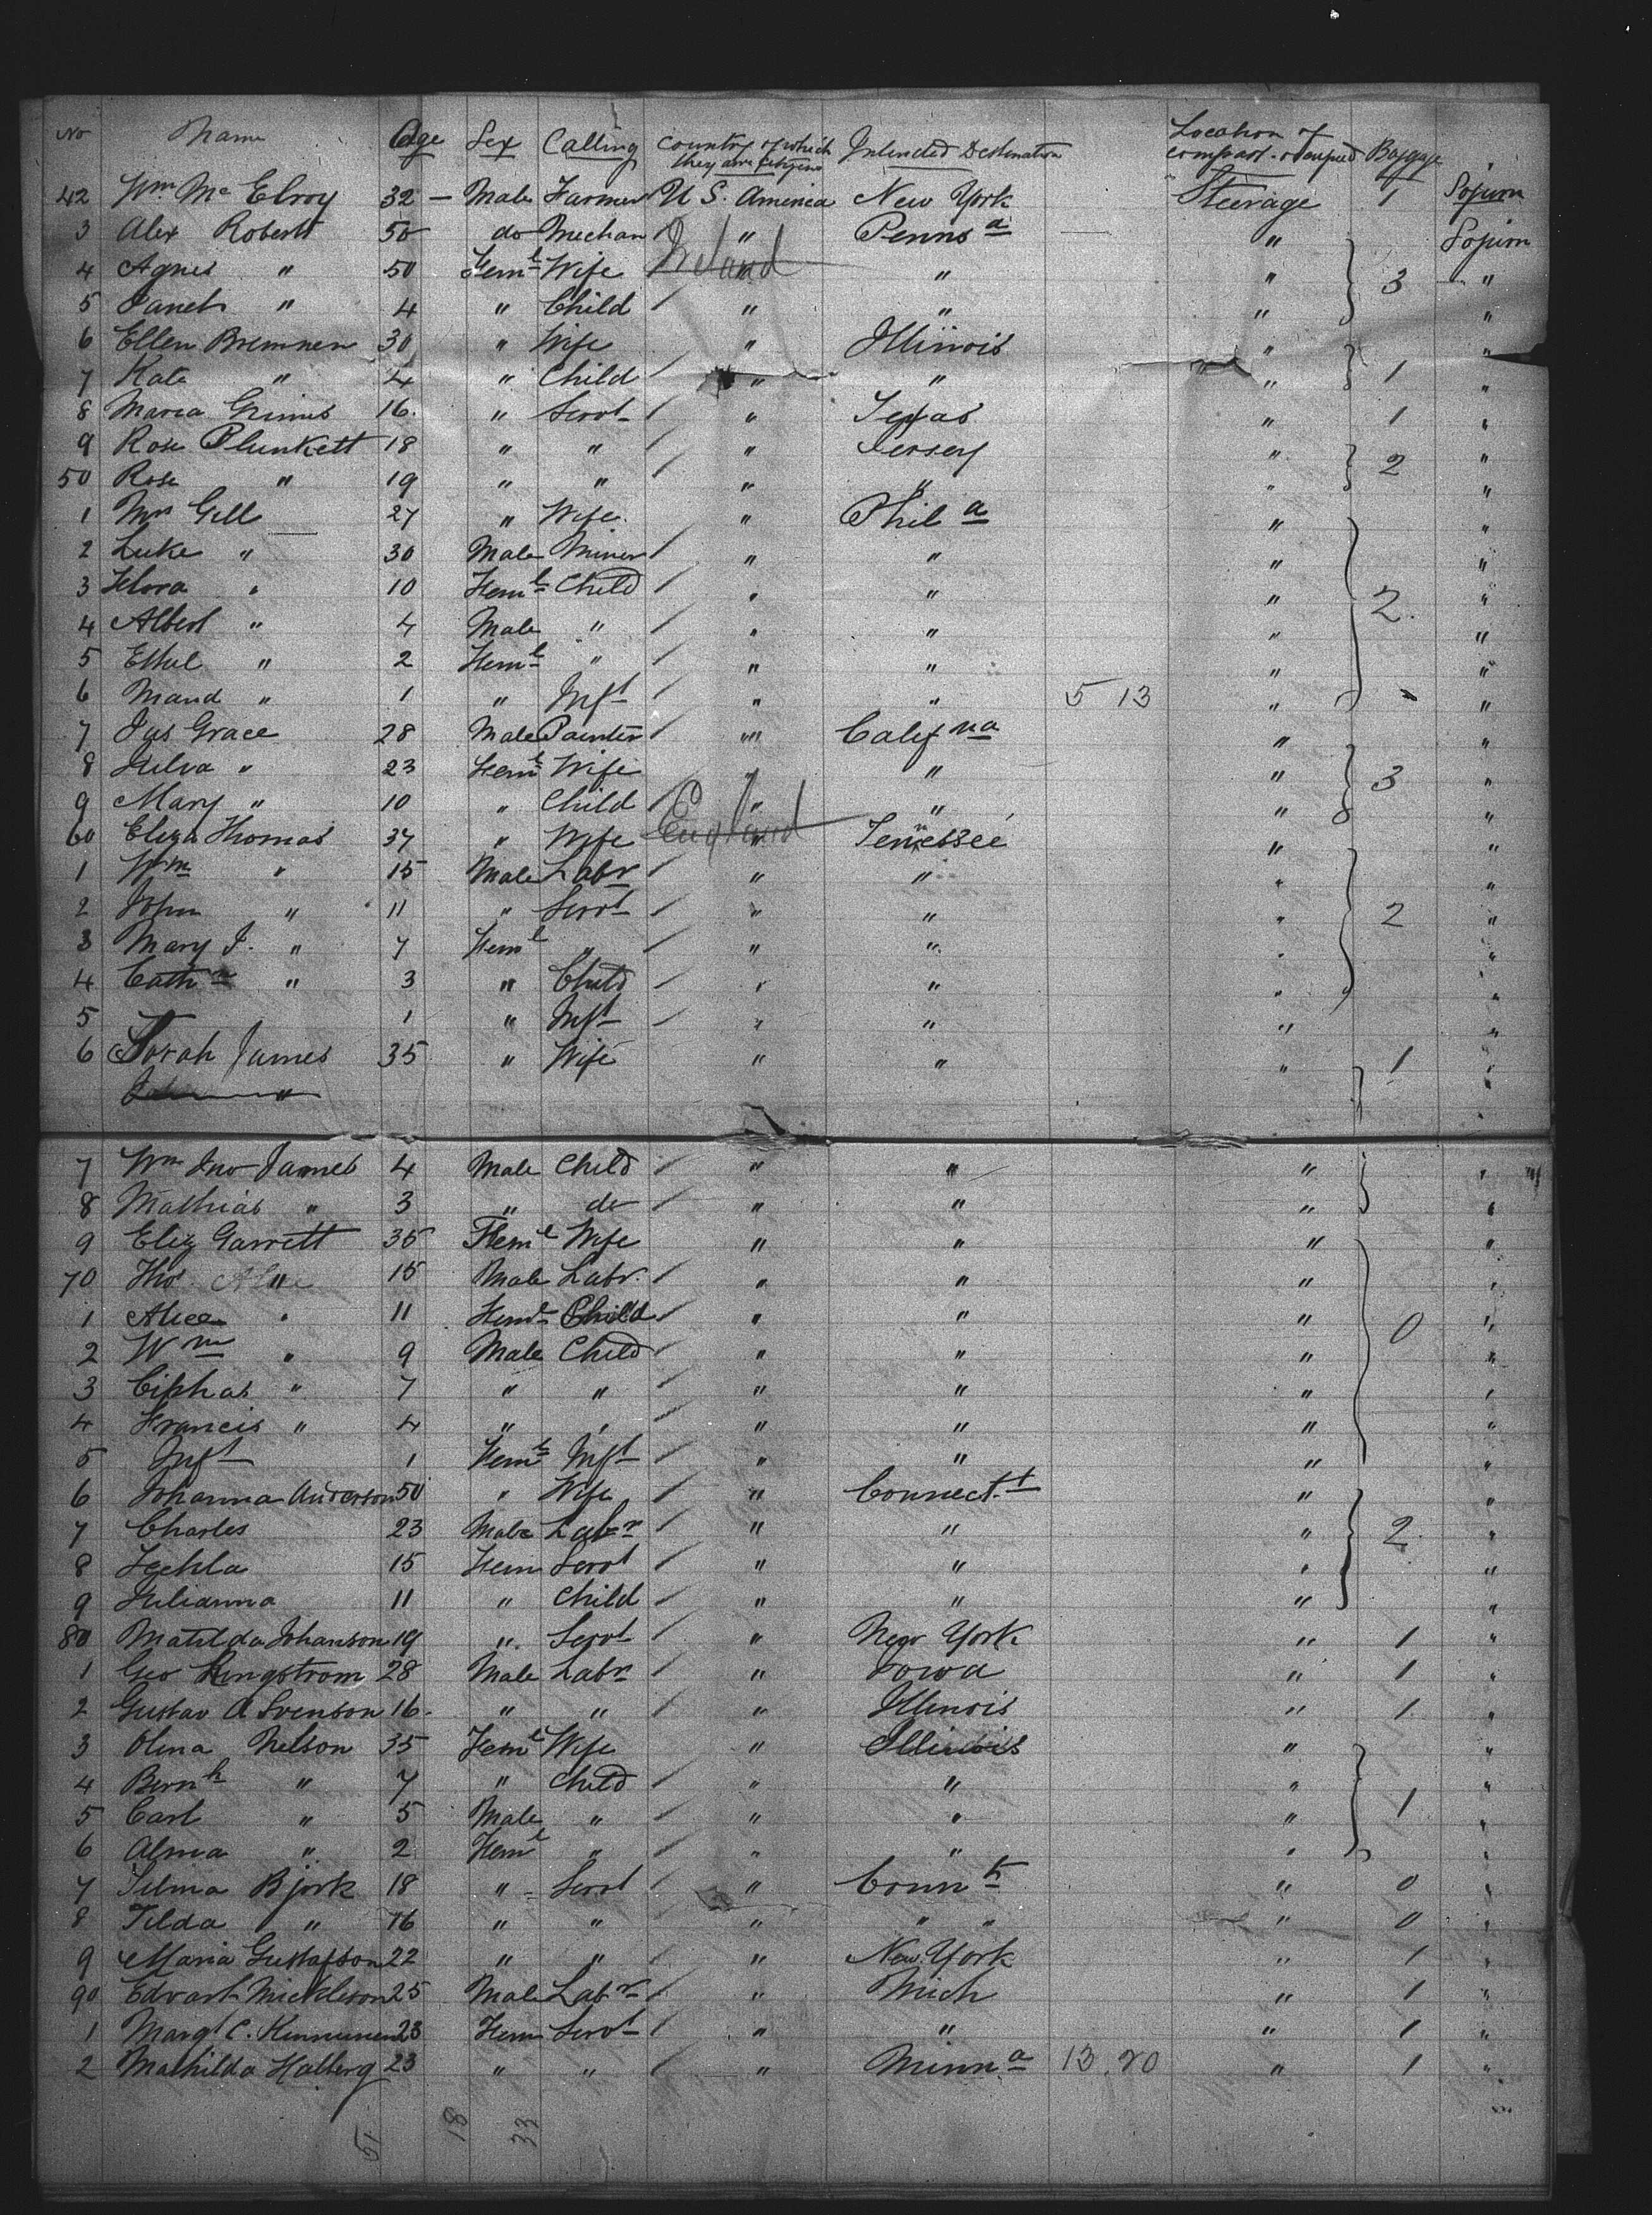 No Name Age Sex Calling Country of which they are citizens Intended Destination Location of compart. occupied Baggage
42 Wm Mc Elroy 32 — Male Farmer U S. America New York Steerage 1 Sojurn
3 Alex Roberts 50 do Mechan " Penns a " Sojurn
4 Agnes " 50 Feml Wife Ireland " " 3 "
5 Janet " 4 " Child " " " "
6 Ellen Bremner 30 " Wife " Illinois " "
7 Kate " 4 " Child " " " 1 "
8 Maria Grimes 16. " Servt " Texas " 1 "
9 Rose Plunkett 18 " " " Jersey " 2 "
50 Rose " 19 " " " " " "
1 Mrs Gill 27 " Wife " Phil a " "
2 Luke " 30 Male Miner " " " "
3 Flora " 10 Feml Child " " " 2. "
4 Albert " 4 Male " " " " "
5 Ethel " 2 Feml " " " " "
6 Maud " 1 " Inft " " 5 13 " "
7 Jas Grace 28 Male Painter "" Calif na " "
8 " 23 Feml Wife " " " 3 "
9 Mary " 10 " Child " " " "
60 Eliza Thomas 37 " Wife England Tennessee " "
1 Wm " 15 Male Labr " " " "
2 John " 11 " Servt " " " 2 "
3 Mary J. " 7 Feml " " " " "
4 Cathn " 3 " Child " " " "
5 1 " Inft " " " "
6 Sarah James 35 " Wife " " " 1 "
7 Wm Jno James 4 Male Child " " " "
8 Mathias " 3 " do " " " "
9 Eliz Garrett 35 Feml Wife " " " "
70 Thos " 15 Male Labr. " " " "
1 Alice " 11 Feml Child " " " 0 "
2 Wm " 9 Male Child " " " "
3 Ciphas " 7 " " " " " "
4 Francis " 4 " " " " " "
5 Inft 1 Feml Inft " " " "
6 Johanna Anderson 50 " Wife " Connect.t " "
7 Charles 23 Male Labr " " " 2. "
8 Techla 15 Fem Servt " " " "
9 Julianna 11 " Child " " " "
80 Matilda Johanson 19 " Servt " New York " 1 "
1 Geo Ringstrom 28 Male Labr " Iowa " 1 "
2 Gustav A Svenson 16. " " " Illinois " 1 "
3 Olena Nelson 35 Feml Wife " Illinois " "
4 Bernh " 7 " Child " " " "
5 Carl " 5 Male " " " " 1 "
6 Alma " 2 Feml " " " " "
7 Selma Bjork 18 " Servt " Conn t " 0 "
8 Tilda " 16 " " " " " " 0 "
9 Maria Gustafson 22 " " " New York " 1 "
90 Edvart Mickleson 25 Male Labr " Mich " 1 "
1 Margt C. Kinnunen 23 Fem Servt " " " 1 "
2 Mathilda Halberg 23 " " " Minn a 13.20 " 1 "
51 18 33